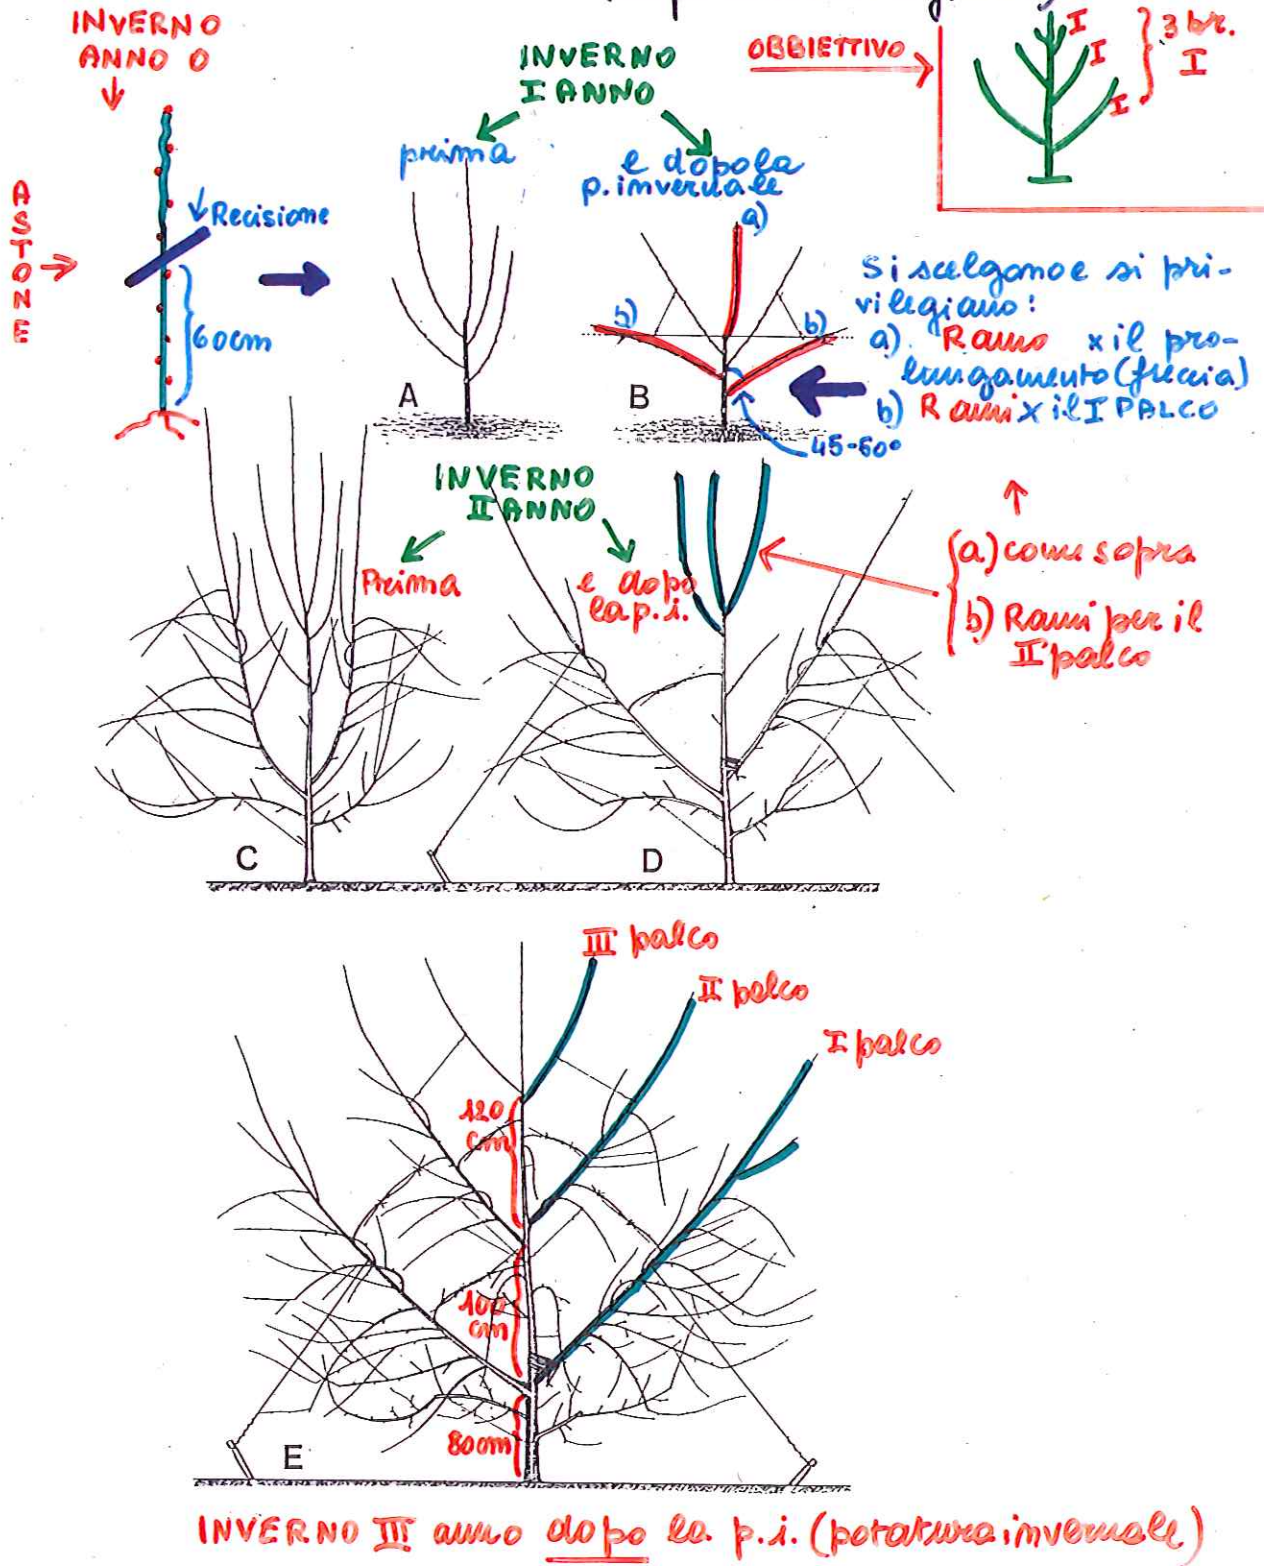 INVERNO
ANNO 0
ASTONE
Recisione
60cm
INVERNO
I ANNO
prima
e dopo la
p. invernale
OBBIETTIVO
I
I
I
3 br.
I
a)
b)
b)
A
B
45-60°
Si scelgono e si pri-
vilegiano:
a) Ramo x il pro-
lungamento (freccia)
b) Rami x il I PALCO
INVERNO
II ANNO
Prima
e dopo
la p.i.
a) come sopra
b) Rami per il
II palco
C
D
III palco
II palco
I palco
120
cm
100
cm
80cm
E
INVERNO III anno dopo la p.i. (potatura invernale)